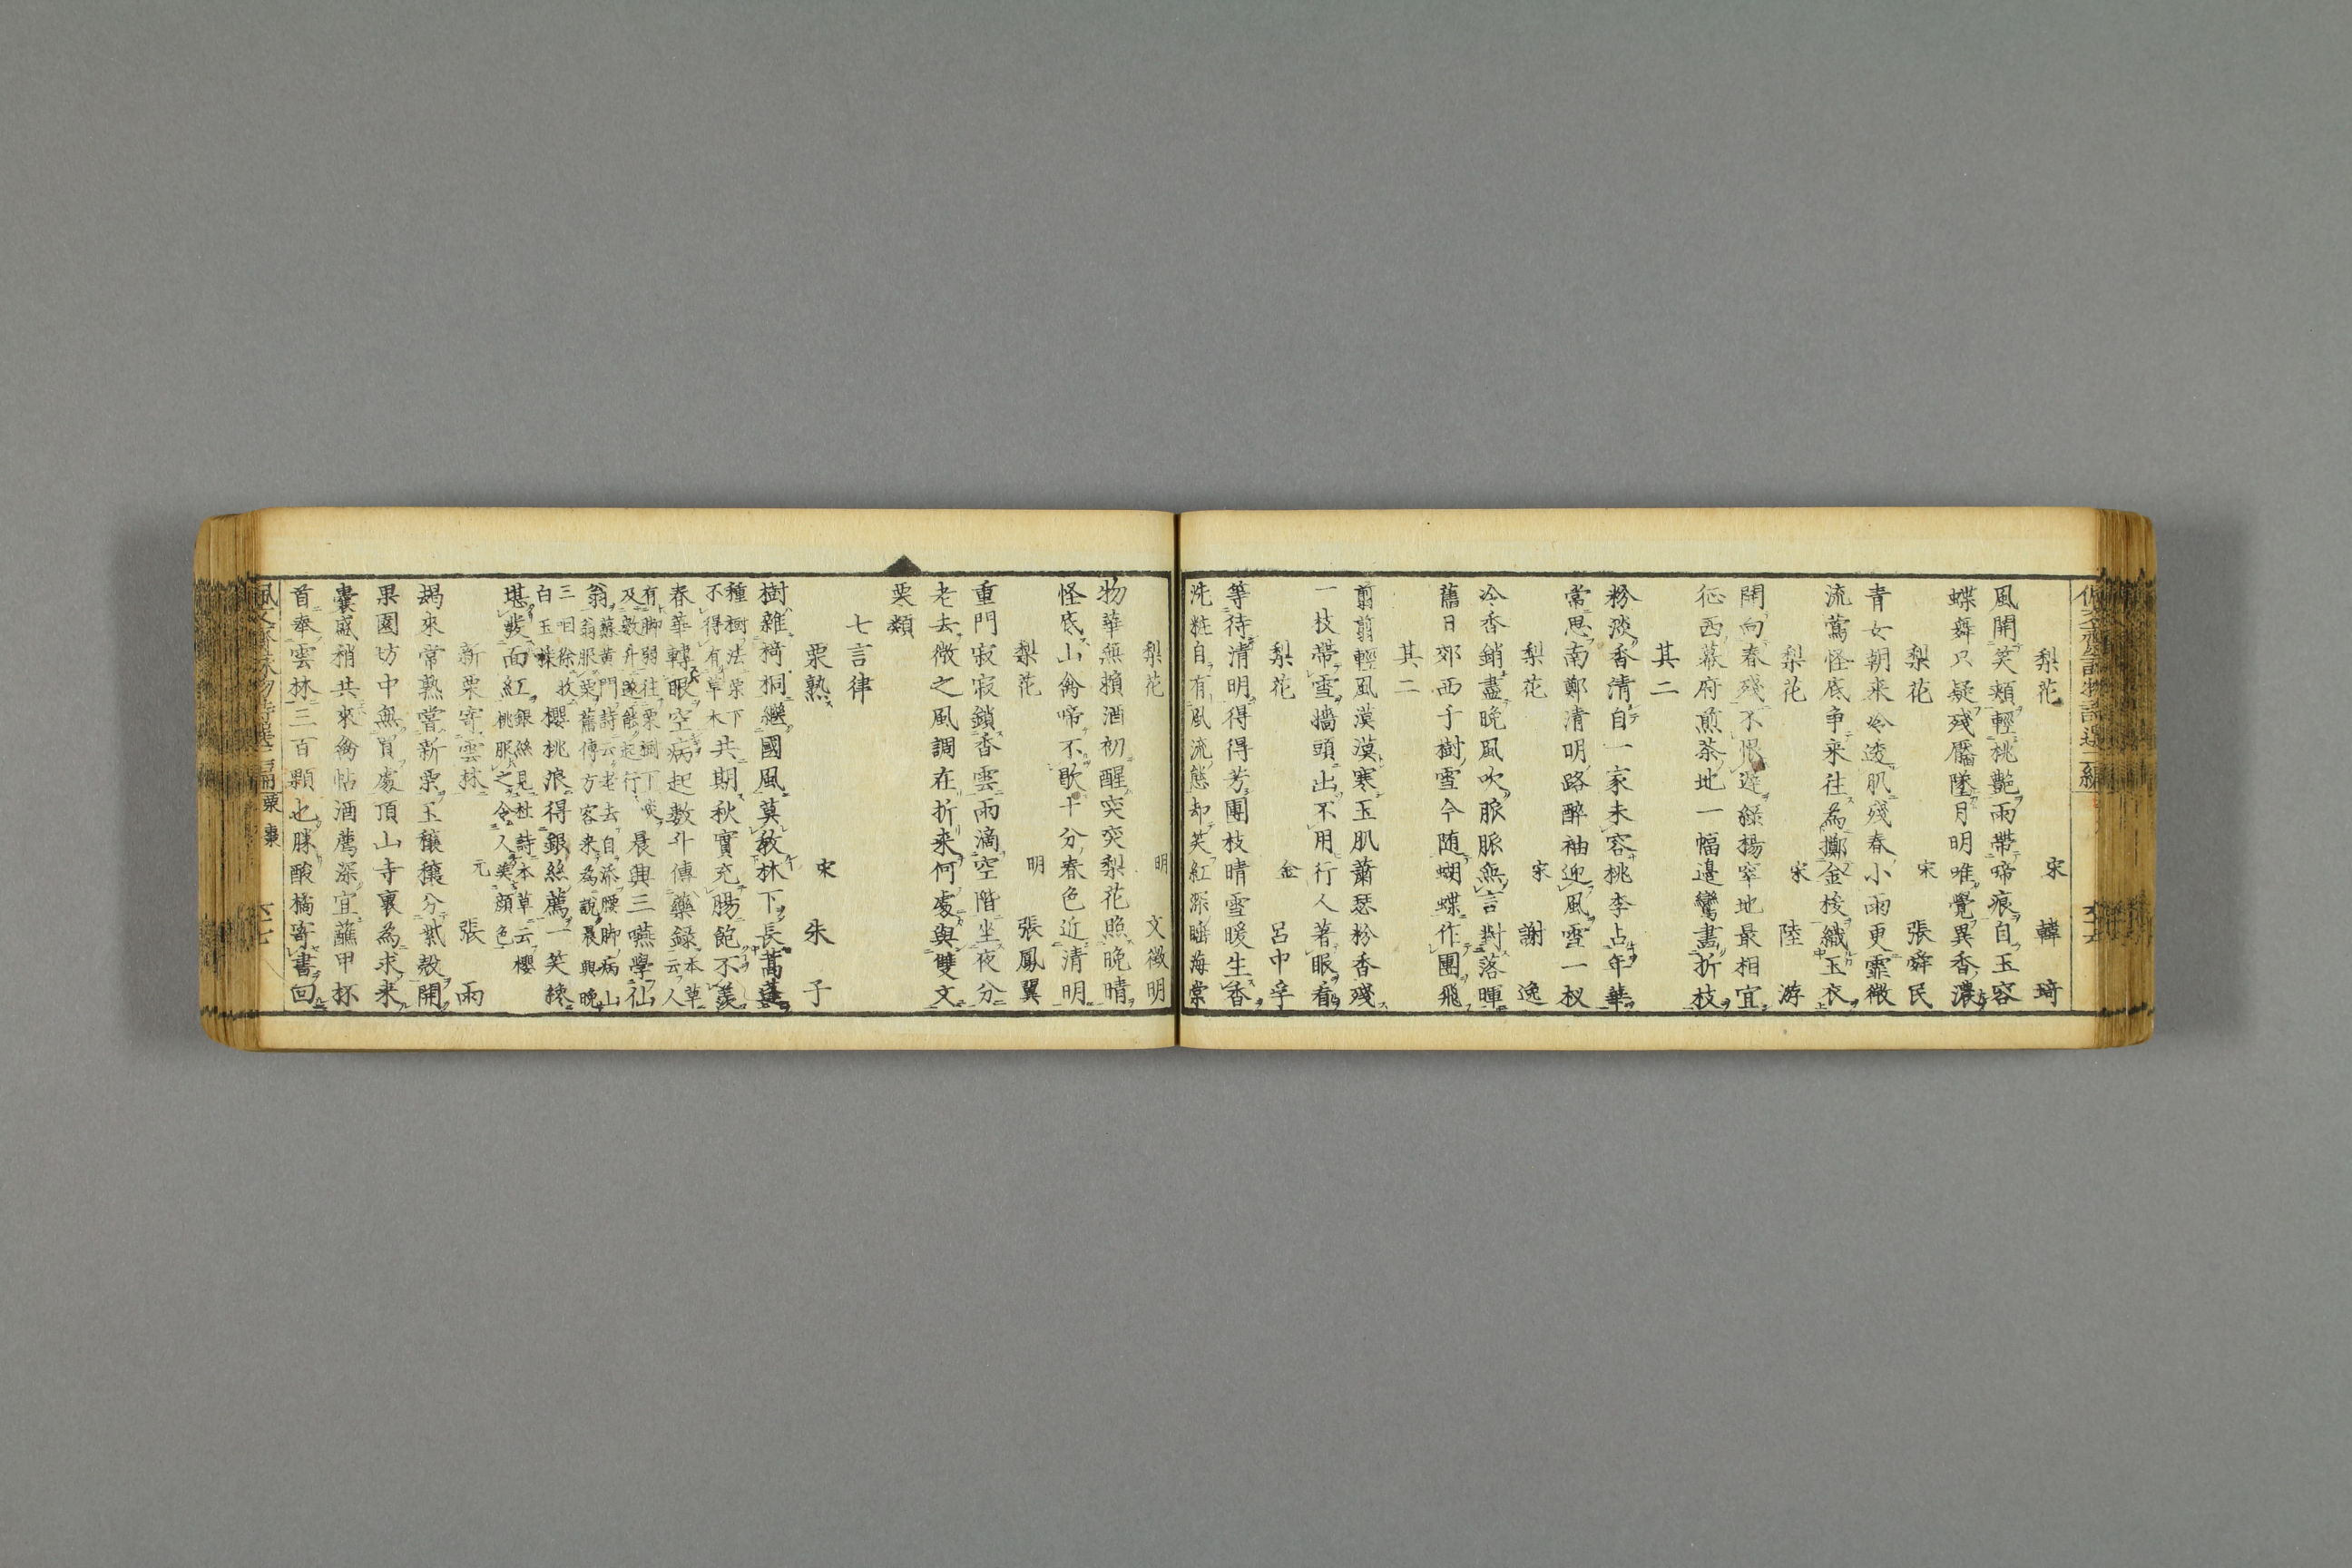 梨花 宋 韓琦
風開笑頰輕桃艶雨帶啼痕自玉容
蝶舞只疑殘靨墜月明唯覺異香濃
梨花 宋 張舜民
青女朝来冷透肌殘春小雨更霏微
流鶯怪底争来往為擲金梭織玉衣
梨花 宋 陸游
開向春殘不恨遲緑楊窣地最相宜
征西幕府煎茶地一幅邊鸞畫折枝
其二
粉淡香清自一家未容桃李占年華
常思南鄭清明路醉袖迎風雪一杈
梨花 宋 謝逸
冷香銷盡晩風吹脈脈無言對落暉
舊日郊西千樹雪今随蝴蝶作團飛
其二
剪剪輕風漠漠寒玉肌蕭瑟粉香殘
一枝帶雪墻頭出不用行人著眼看
梨花 金 呂中孚
等待清明得得芳團枝晴雪暖生香
洗粧自有風流態却笑紅深睡海棠
梨花 明 文徴明
物華無頼酒初醒突奕梨花照晩晴
怪底山禽啼不歇千分春色近清明
梨花 明 張鳳翼
重門寂寂鎖香雲雨滴空階坐夜分
老去微之風調在折来何處與雙文
栗類
七言律
栗熟 宋 朱子
樹雜椅桐繼國風莫教林下長蒿蓬
種樹法栗下不得有草木共期秋實充腸飽不羨
春華轉眼空病起數斗傳藥録本草云人
有脚弱往栗樹下食及數升遂能起行晨興三嚥學仙
翁蘇黄門詩云老去自添腰脚病山翁服栗舊傳方客来為説晨興晩
三咽徐收白玉漿櫻桃浪得銀絲薦一笑纔
堪發面紅銀絲見杜詩本草云櫻桃服之令人美顔色
新栗寄雲林 元 張雨
朅來常熟嘗新栗玉穰穰分紫殻開
果園坊中無買處頂山寺裏為求来
囊盛稍共來禽帖酒薦深宜蘸甲杯
首奉雲林三百顆也勝酸橘寄書回